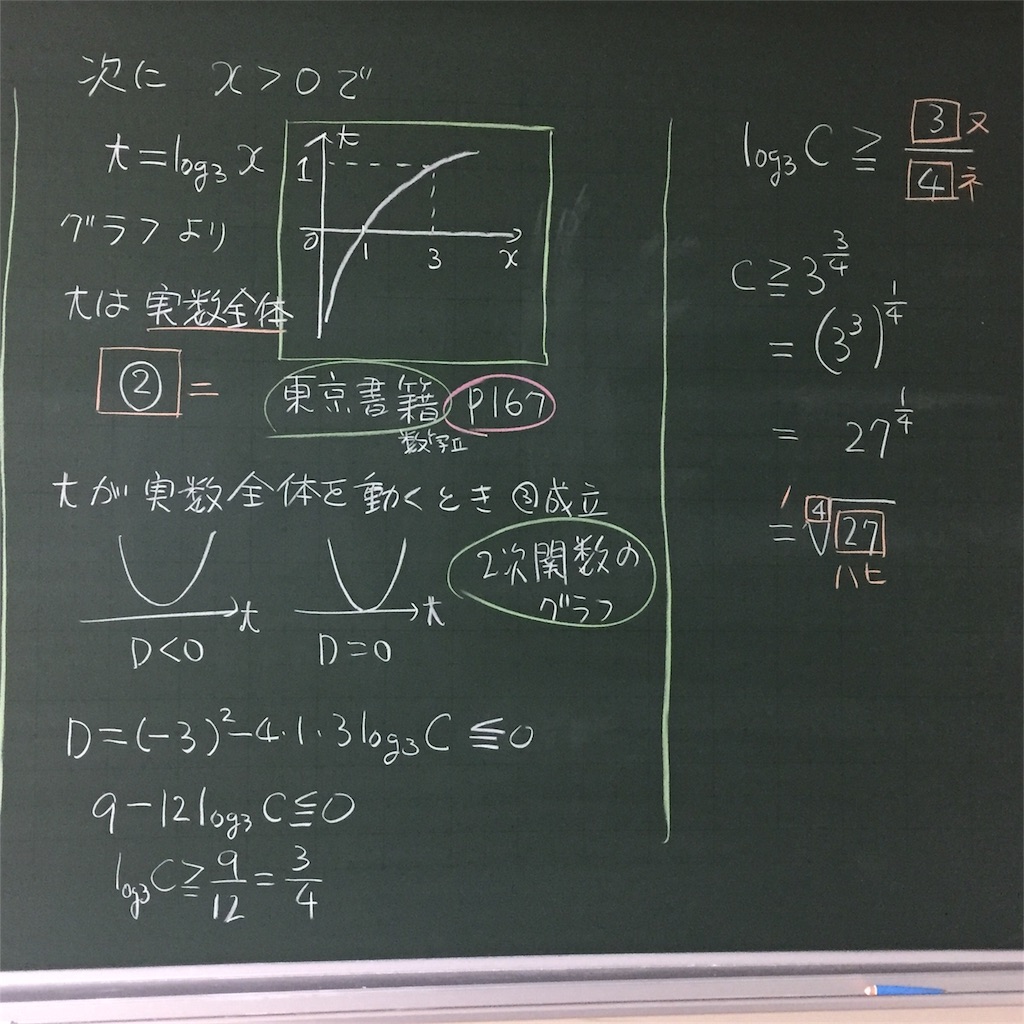 次に x>0で
t=log₃x
t
1
0
1
3
x
グラフより
tは実数全体
② ニ
東京書籍 P167
数学II
tが実数全体を動くとき ③成立
t
t
D<0
D=0
2次関数の
グラフ
D=(-3)²-4・1・3log₃C≦0
9-12log₃C≦0
log₃C≧9/12=3/4
log₃C≧3/4
ヌ
ネ
C≧3^(3/4)
=(3³)^(1/4)
=27^(1/4)
=⁴√27
ノ
ハヒ